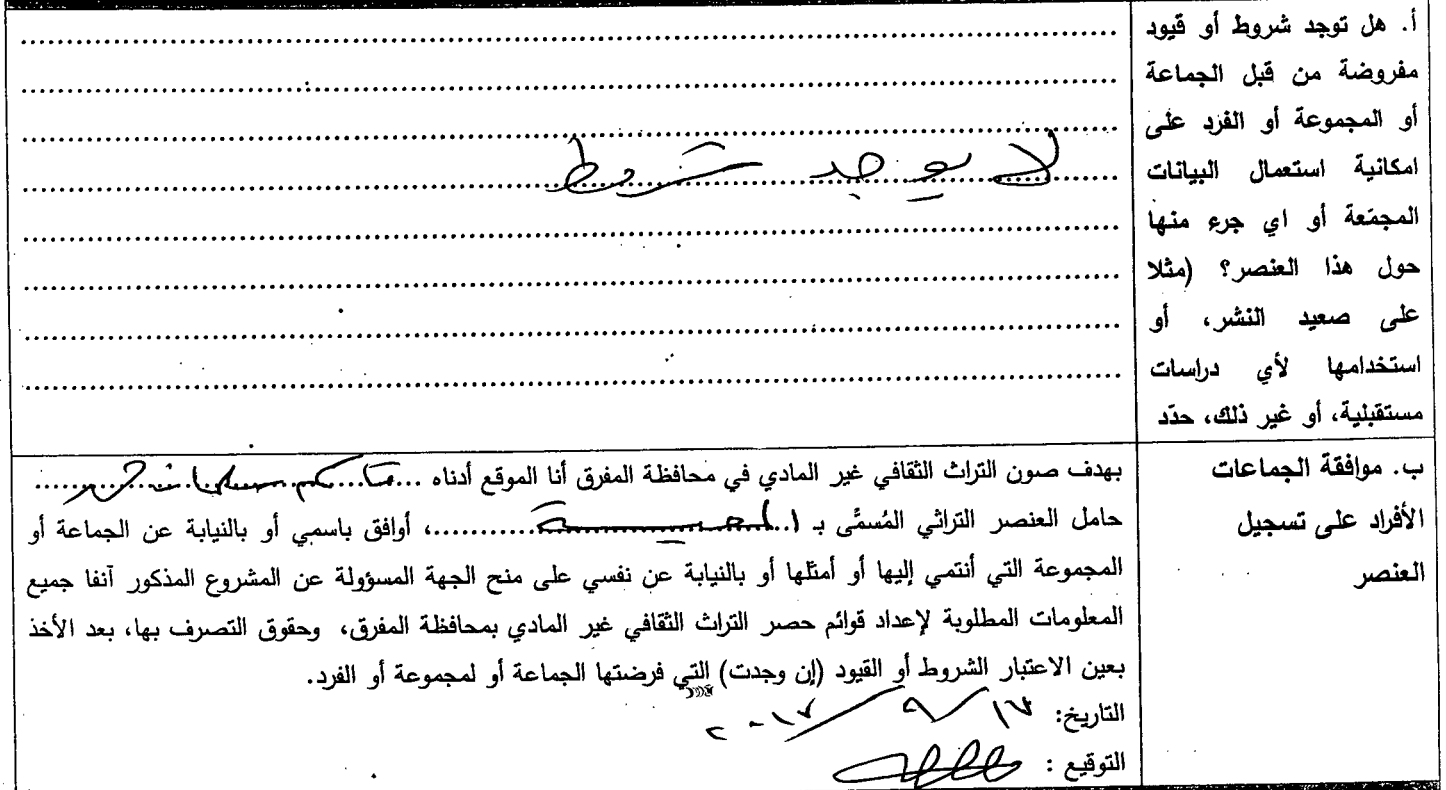 أ. هل توجد شروط أو قيود
مفروضة من قبل الجماعة
أو المجموعة أو الفرد على
امكانية استعمال البيانات
المجمّعة أو اي جرء منها
حول هذا العنصر؟ (مثلا
على صعيد النشر، أو
استخدامها لأي دراسات
مستقبلية، أو غير ذلك، حدّد
لا يوجد شروط
ب. موافقة الجماعات
الأفراد على تسجيل
العنصر
بهدف صون التراث الثقافي غير المادي في محافظة المفرق أنا الموقع أدناه
حامل العنصر التراثي المُسمَّى بـ ............، أوافق باسمي أو بالنيابة عن الجماعة أو
المجموعة التي أنتمي إليها أو أمثلها أو بالنيابة عن نفسي على منح الجهة المسؤولة عن المشروع المذكور آنفا جميع
المعلومات المطلوبة لإعداد قوائم حصر التراث الثقافي غير المادي بمحافظة المفرق، وحقوق التصرف بها، بعد الأخذ
بعين الاعتبار الشروط أو القيود (إن وجدت) التي فرضتها الجماعة أو لمجموعة أو الفرد.
التاريخ: ١٧ / ٩ / ٢٠١٧
التوقيع :